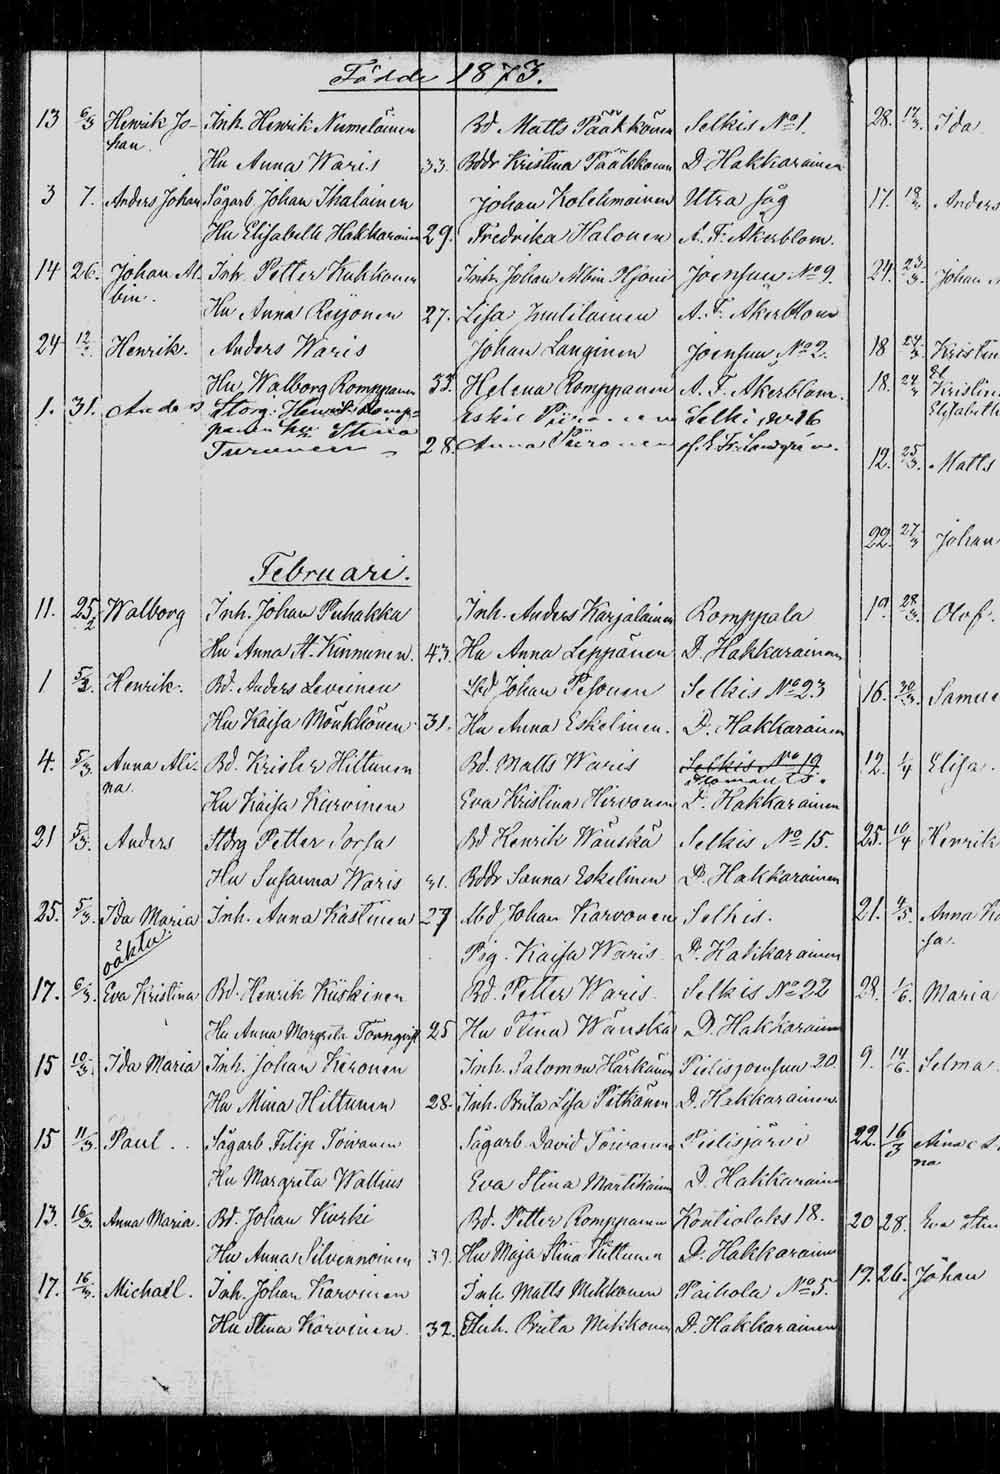 Födde 1873.
13 6/3 Henrik Jo- Inh. Henrik Numelainen Bd Matts Pääkkönen Selkis No 1.
han. Hu Anna Waris 33. Bddr Kristina Pääkkönen D. Hakkarainen
3 7. Anders Johan Sågarb. Johan Ihalainen Johan Kolehmainen Utra såg
Hu Elisabeth Hakkarainen 29. Fredrika Halonen A. F. Åkerblom.
14 26. Johan Al- Inh. Petter Kukkonen Inh. Johan Albin Joensuu No 9.
bin. Hu Anna Roijonen 27. Lisa A. F. Åkerblom
24 12/3 Henrik. Anders Waris Johan Langinen Joensuu No 2.
Hu Walborg Romppanen 35. Helena Romppanen A. F. Åkerblom.
1. 31. Anders Storp. Henrik Romp- Eskil Piironen Selki No 16
panen hu Stina
Turunen 28. Anna Piironen E. Fr. Landgrén.
Februari.
11. 25/2 Walborg Inh. Johan Puhakka Inh. Anders Karjalainen Romppala
Hu Anna St. Kinnunen. 43. Hu Anna Leppänen D. Hakkarainen
1 5/3. Henrik. Bd. Anders Leveinen Lbd Johan Pesonen Selkis No 23
Hu Kaisa Mönkkönen 31. Hu Anna Eskelinen. D. Hakkarainen
4. 5/3. Anna Ali- Bd. Krister Hiltunen Bd. Matts Waris Selkis No 19.
na. Ilomants.
Hu Kaisa Kurvinen Eva Kristina Hirvonen D. Hakkarainen
21 5/3. Anders Stdrg Petter Sorsa Bd Henrik Wänskä Selkis No 15.
Hu Susanna Waris 31. Bddr Sanna Eskelinen D. Hakkarainen
25. 5/3. Ida Maria Inh. Anna Kastinen 27 Lbd Johan Karvonen Selkis.
oäkta Pig. Kaisa Waris D. Hakkarainen
17. 6/3. Eva Kristina Bd. Henrik Kiiskinen Bd. Petter Waris. Selkis No 22
Hu Anna Margreta Törnqvist 25 Hu Stina Wänskä D. Hakkarainen
15 10/3. Ida Maria Inh. Johan Kieronen Inh. Salomon Härkönen Pielisjoensuu 20.
Hu Mina Hiltunen 28. Inh. Brita Lisa Pitkänen D. Hakkarainen
15 11/3. Paul. Sågarb. Filip Toivanen Sågarb David Toivanen Pielisjärvi
Hu Margreta Wallius Eva Stina Martikainen D. Hakkarainen
13. 16/3. Anna Maria. Bd. Johan Kurki Bd. Petter Romppanen Kontiolaks 18.
Hu Anna Silvennoinen 39. Hu Maja Stina Hiltunen D. Hakkarainen
17. 16/3. Michaël. Inh. Johan Karvinen Inh. Matts Mikkonen Paihola No 5.
Hu Stina Karvinen. 32. Inh. Brita Mikkonen D. Hakkarainen
28. 17/3. Ida
17. 18/3. Anders
24. 23/3. Johan
18 24/3 Kristin
18. 24/3 Kristin
Elisabeth
12. 25/3. Matts
22. 27/3 Johan
19. 28/3. Olof.
16. 30/3. Samue
12. 1/4 Elisa.
25. 10/4 Henrik
21. 4/5. Anna Ka
sa.
28. 1/6. Maria
9. 14/6. Selma
22. 16/3
na
20 28. Eva Stin
19. 26. Johan